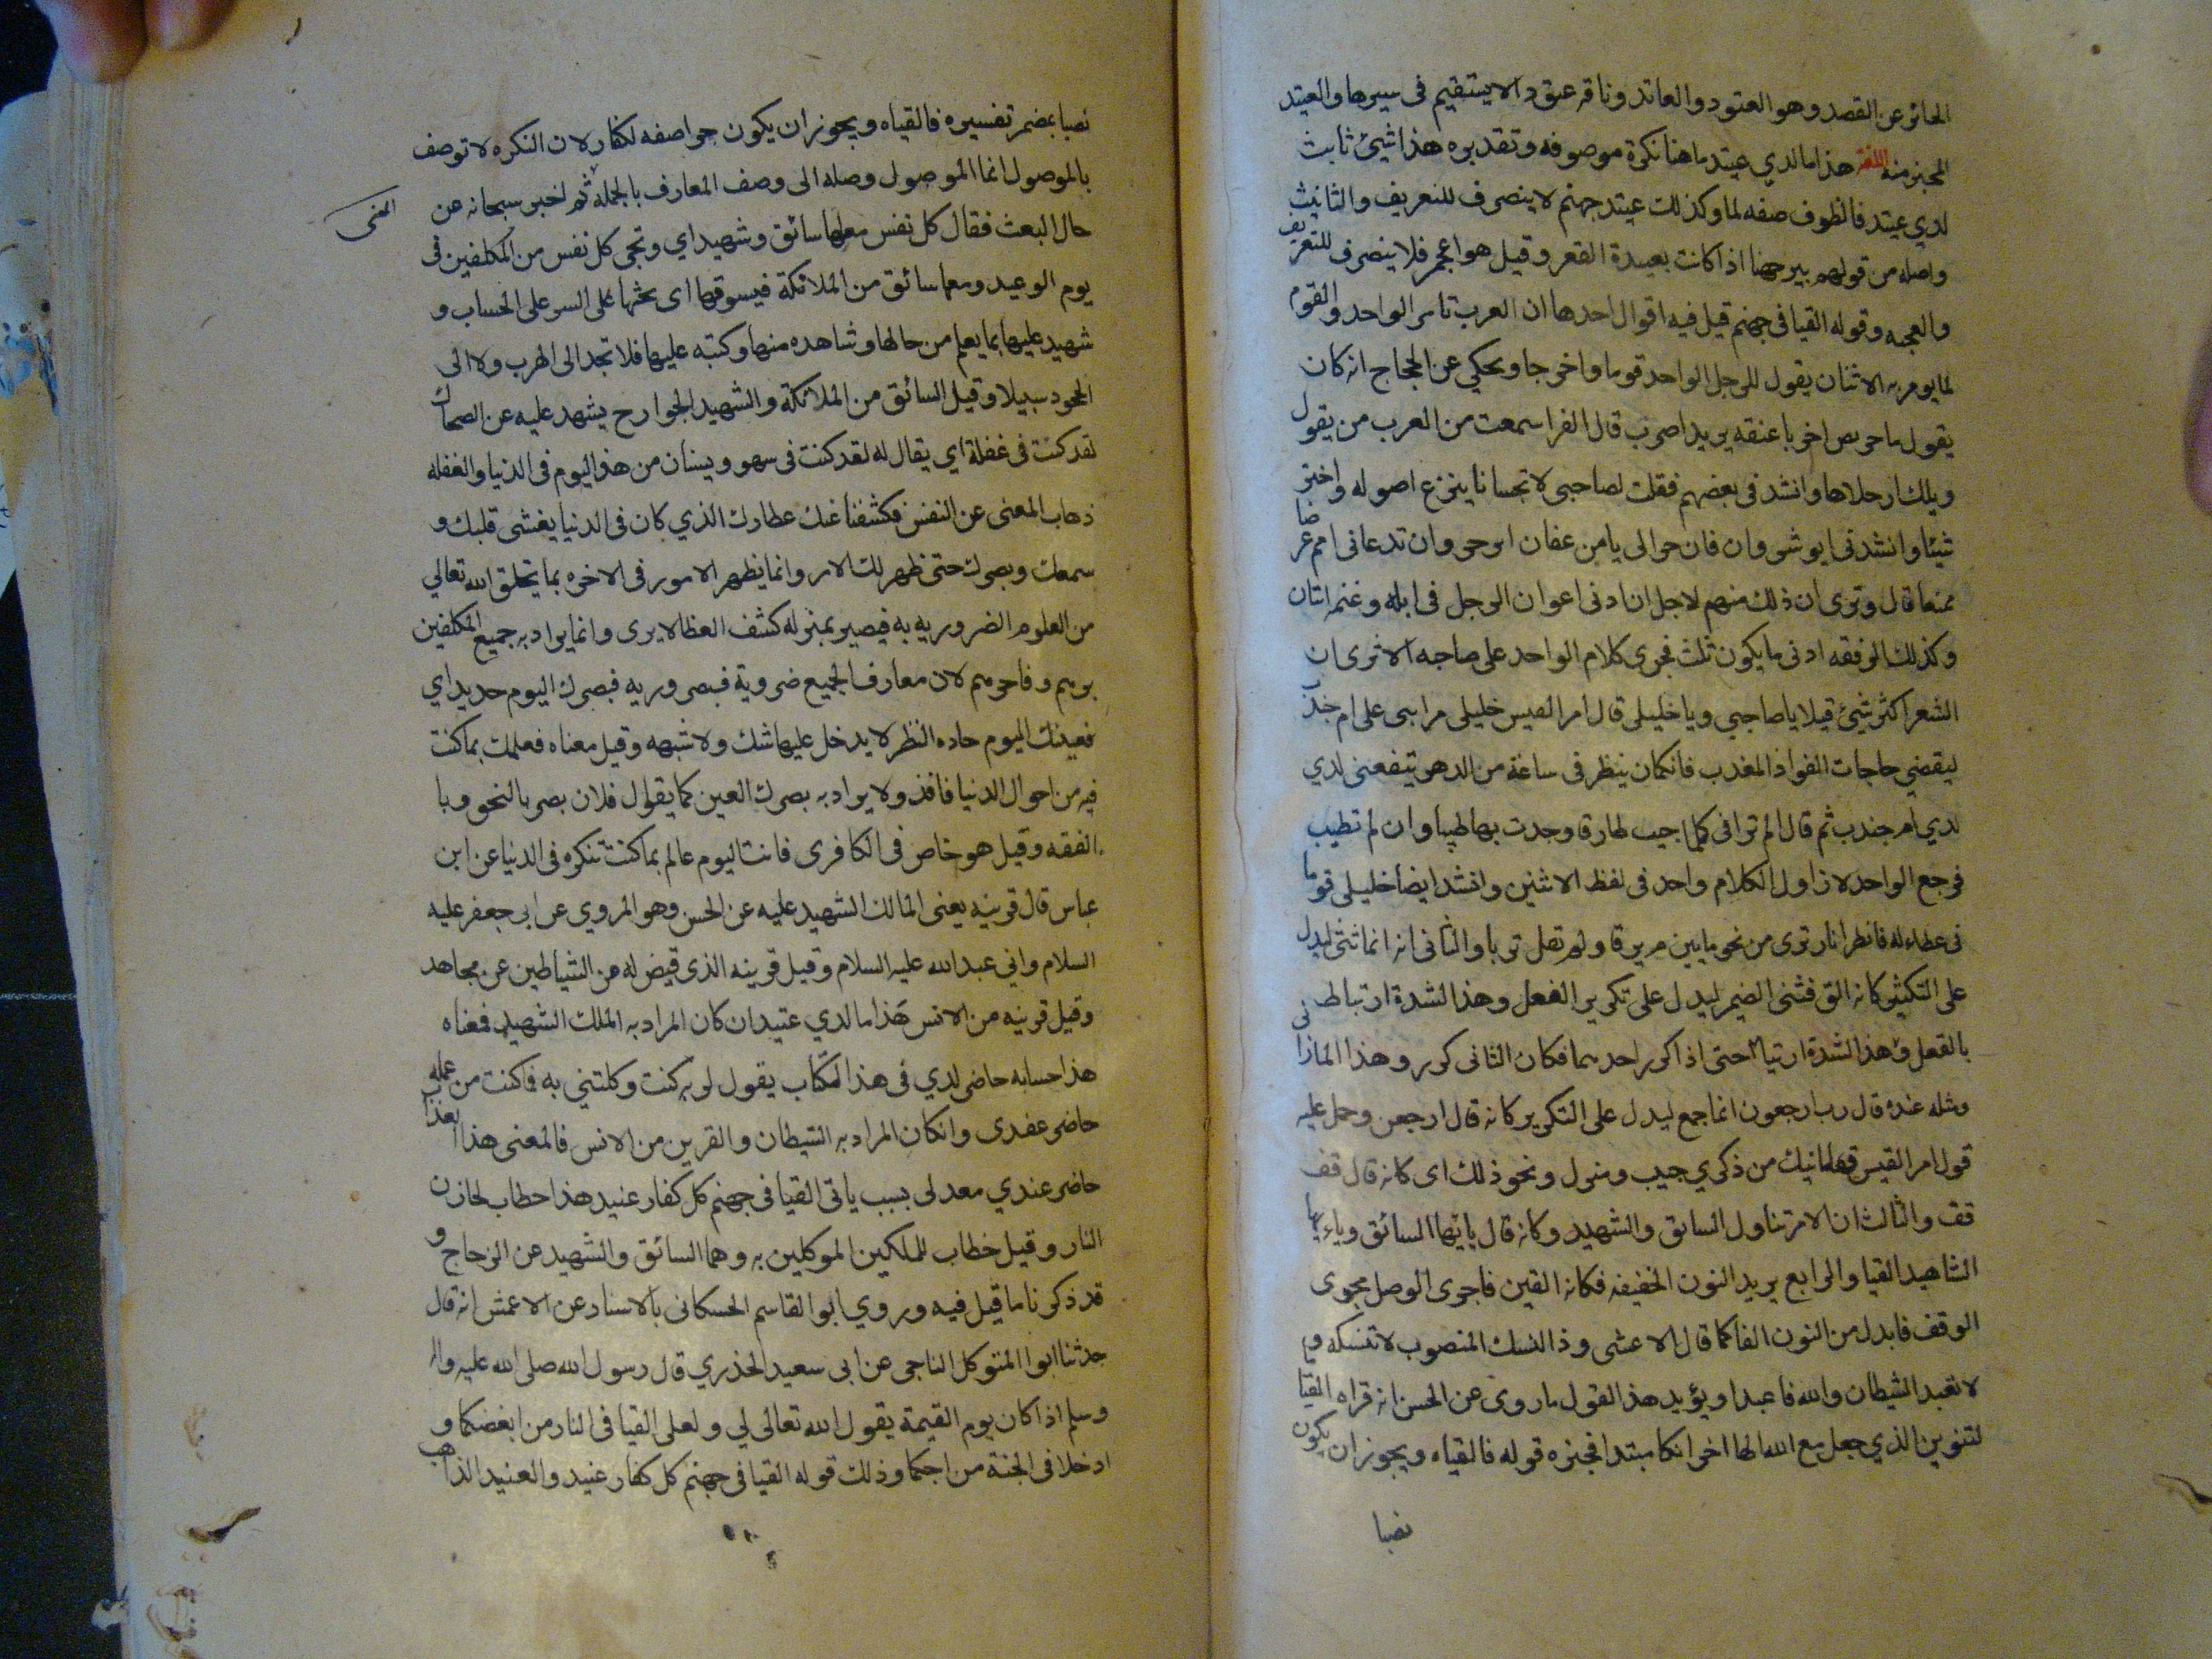 الحائر عن القصد وهو العتود والعاند وناقه عنود لا يستقيم في سيرها والعيتد
المحبز منه اللغة هذا ما لدي عيتد ما هنا نكرة موصوفه وتقديره هذا شيئ ثابت
لدي عيتد فالظرف صفه لما وكذلك عيتد جهنم لا ينصرف للتعريف والتانيث
واصله من قولهم بير جهنا اذا كانت بعيدة القعر وقيل هو اعجمر فلا ينصرف للتعريف
والعجمه وقوله القيا في جهنم قيل فيه اقوال احدها ان العرب تامر الواحد والقوم
لما يومر به الاثنان يقول للرجل الواحد قوما واخرجا ويحكي عن الحجاج انه كان
يقول يا حرسي اضربا عنقه يريد اضرب قال الفرا سمعت من العرب من يقول
ويلك ارحلاها وانشدني بعضهم فقلت لصاحبي لا تحبسانا بنزع اصوله واختر
شيئا وانشدني ابو ثروان فان تزجراني يا بن عفان انزجر وان تدعاني احم عرضا
ممنعا قال وترى ان ذلك منهم لاجل ان ادنى اعوان الرجل في ابله وغنمه اثنان
وكذلك الرفقه ادنى ما يكون ثلث فجرى كلام الواحد على صاحبه الا ترى ان
الشعر اكثر شيئ قيلا يا صاحبي ويا خليلي قال امر القيس خليلي مرا بي على ام جندب
ليقضي حاجات الفواد المغدب فانكما ان ينظرني ساعة من الدهر تنفعني لدي
لدي ام جندب ثم قال الم تراني كلما جيت طارقا وجدت بها طيبا وان لم تطيب
فرجع الواحد لان اول الكلام واحد في لفظ الاثنين وانشد ايضا خليلي قوما
في عطاله فانظرا نار ترى من نحو ما بين مريرقا ولم تقل تريا والثاني انه انما ثنى ليدل
على التكثير كانه الق فثنى الضمير ليدل على تكرير الفعل وهذا لشدة ارتباط
بالفعل وهذا لشدة ارتيا حتى اذا كرر احدهما فكان الثاني كرر وهذا المازني
ومثله عنده قال رب ارجعون انما جمع ليدل على التكرير كانه قال ارجعن وحمل عليه
قول امر القيس قفا نبك من ذكري حبيب ومنزل ونحو ذلك اى كانه قال قف
قف والثالث ان الامر تناول السايق والشهيد وكانه قال يا يها السائق ويا يها
الشاهيد القيا والرابع يريد النون الخفيفه فكانه القين فاجرى الوصل مجرى
الوقف فابدل من النون الفا كما قال الاعشى وذا النسك المنصوب لا تنسكه و
لا تعبد الشيطان والله فاعبدا ويؤيد هذا القول ما روى عن الحسن انه قراه القيا
لتنوين الذي جعل مع الله الها اخر انكا مبتدا فجزه قوله فالقياه ويجوز ان يكون
نصبا
نصبا بمضمر تفسيره فالقياه ويجوز ان يكون جرا صفه لكفار لان النكره لا توصف
بالموصول انما الموصول وصله الى وصف المعارف بالجملة ثم اخبر سبحانه عن
المعنى
حال البعث فقال كل نفس معها سائق وشهيد اي وتجى كل نفس من المكلفين في
يوم الوعيد ومعها سائق من الملائكة فيسوقها اى يحثها على السر على الحساب و
شهيد عليها بما يعلم من حالها وشاهده منها وكتبه عليها فلا تجد الى الهرب ولا الى
الجحود سبيلا وقيل السائق من الملائكة والشهيد الجوارح يشهد عليه عن الضحاك
لقد كنت في غفلة اي يقال له لقد كنت في سهو ونسيان من هذا اليوم في الدنيا والغفله
ذهاب المعنى عن النفس فكشفنا عنك عطارك الذي كان في الدنيا يغشى قلبك و
سمعك وبصرك حتى ظهر لك الامر وانما يظهر الامور في الاخره بما يخلق الله تعالي
من العلوم الضروريه به فيصير بمنزله كشف العظا لا يرى وانما يراد به جميع المكلفين
برهم وفاجرهم لان معارف الجميع ضروية فبصروريه فبصرك اليوم حديد اي
فعينك اليوم حاده النظر لا يدخل عليها شك ولا شبهه وقيل معناه فعلمك بما كنت
فيه من احوال الدنيا فافذ ولا يراد به بصرك العين كما يقال فلان بصر بالنحو وبا
الفقه وقيل هو خاص في الكافرى فانت اليوم عالم بما كنت تنكره في الدنيا عن ابن
عباس قال قرينه يعنى المالك الشهيد عليه عن الحسن وهو المروي عن ابي جعفر عليه
السلام وابي عبد الله عليه السلام وقيل قرينه الذي قيض له من الشياطين عن مجاهد
وقيل قرينه من الانس هذا ما لدي عتيد ان كان المراد به الملك الشهيد فعناه
هذا حسابه حاضر لدي في هذا الكتاب يقول لربه كنت وكلتني به فاكنت من عمله
حاضر عفدى وان كان المراد به الشيطان والقرين من الانس فالمعنى هذا العذاب
حاضر عندي معد لي بسبب ياتي القيا في جهنم كل كفار عنيد هذا حطاب لخازن
النار وقيل خطاب للملكين الموكلين به وهما السائق والشهيد عن الزجاج و
قد ذكرنا ما قيل فيه وروي ابو القاسم الحسكاني بالاسناد عن الاعمش انه قال
حدثنا ابوا المتوكل الناجى عن ابي سعيد الخذري قال رسول الله صلى الله عليه واله
وسلم اذا كان يوم القيمة يقول الله تعالى لي ولعلى القيا في النار من ابغضكما و
ادخلا في الجنة من احبكما وذلك قوله القيا في جهنم كل كفار عنيد والعنيد الذاهب